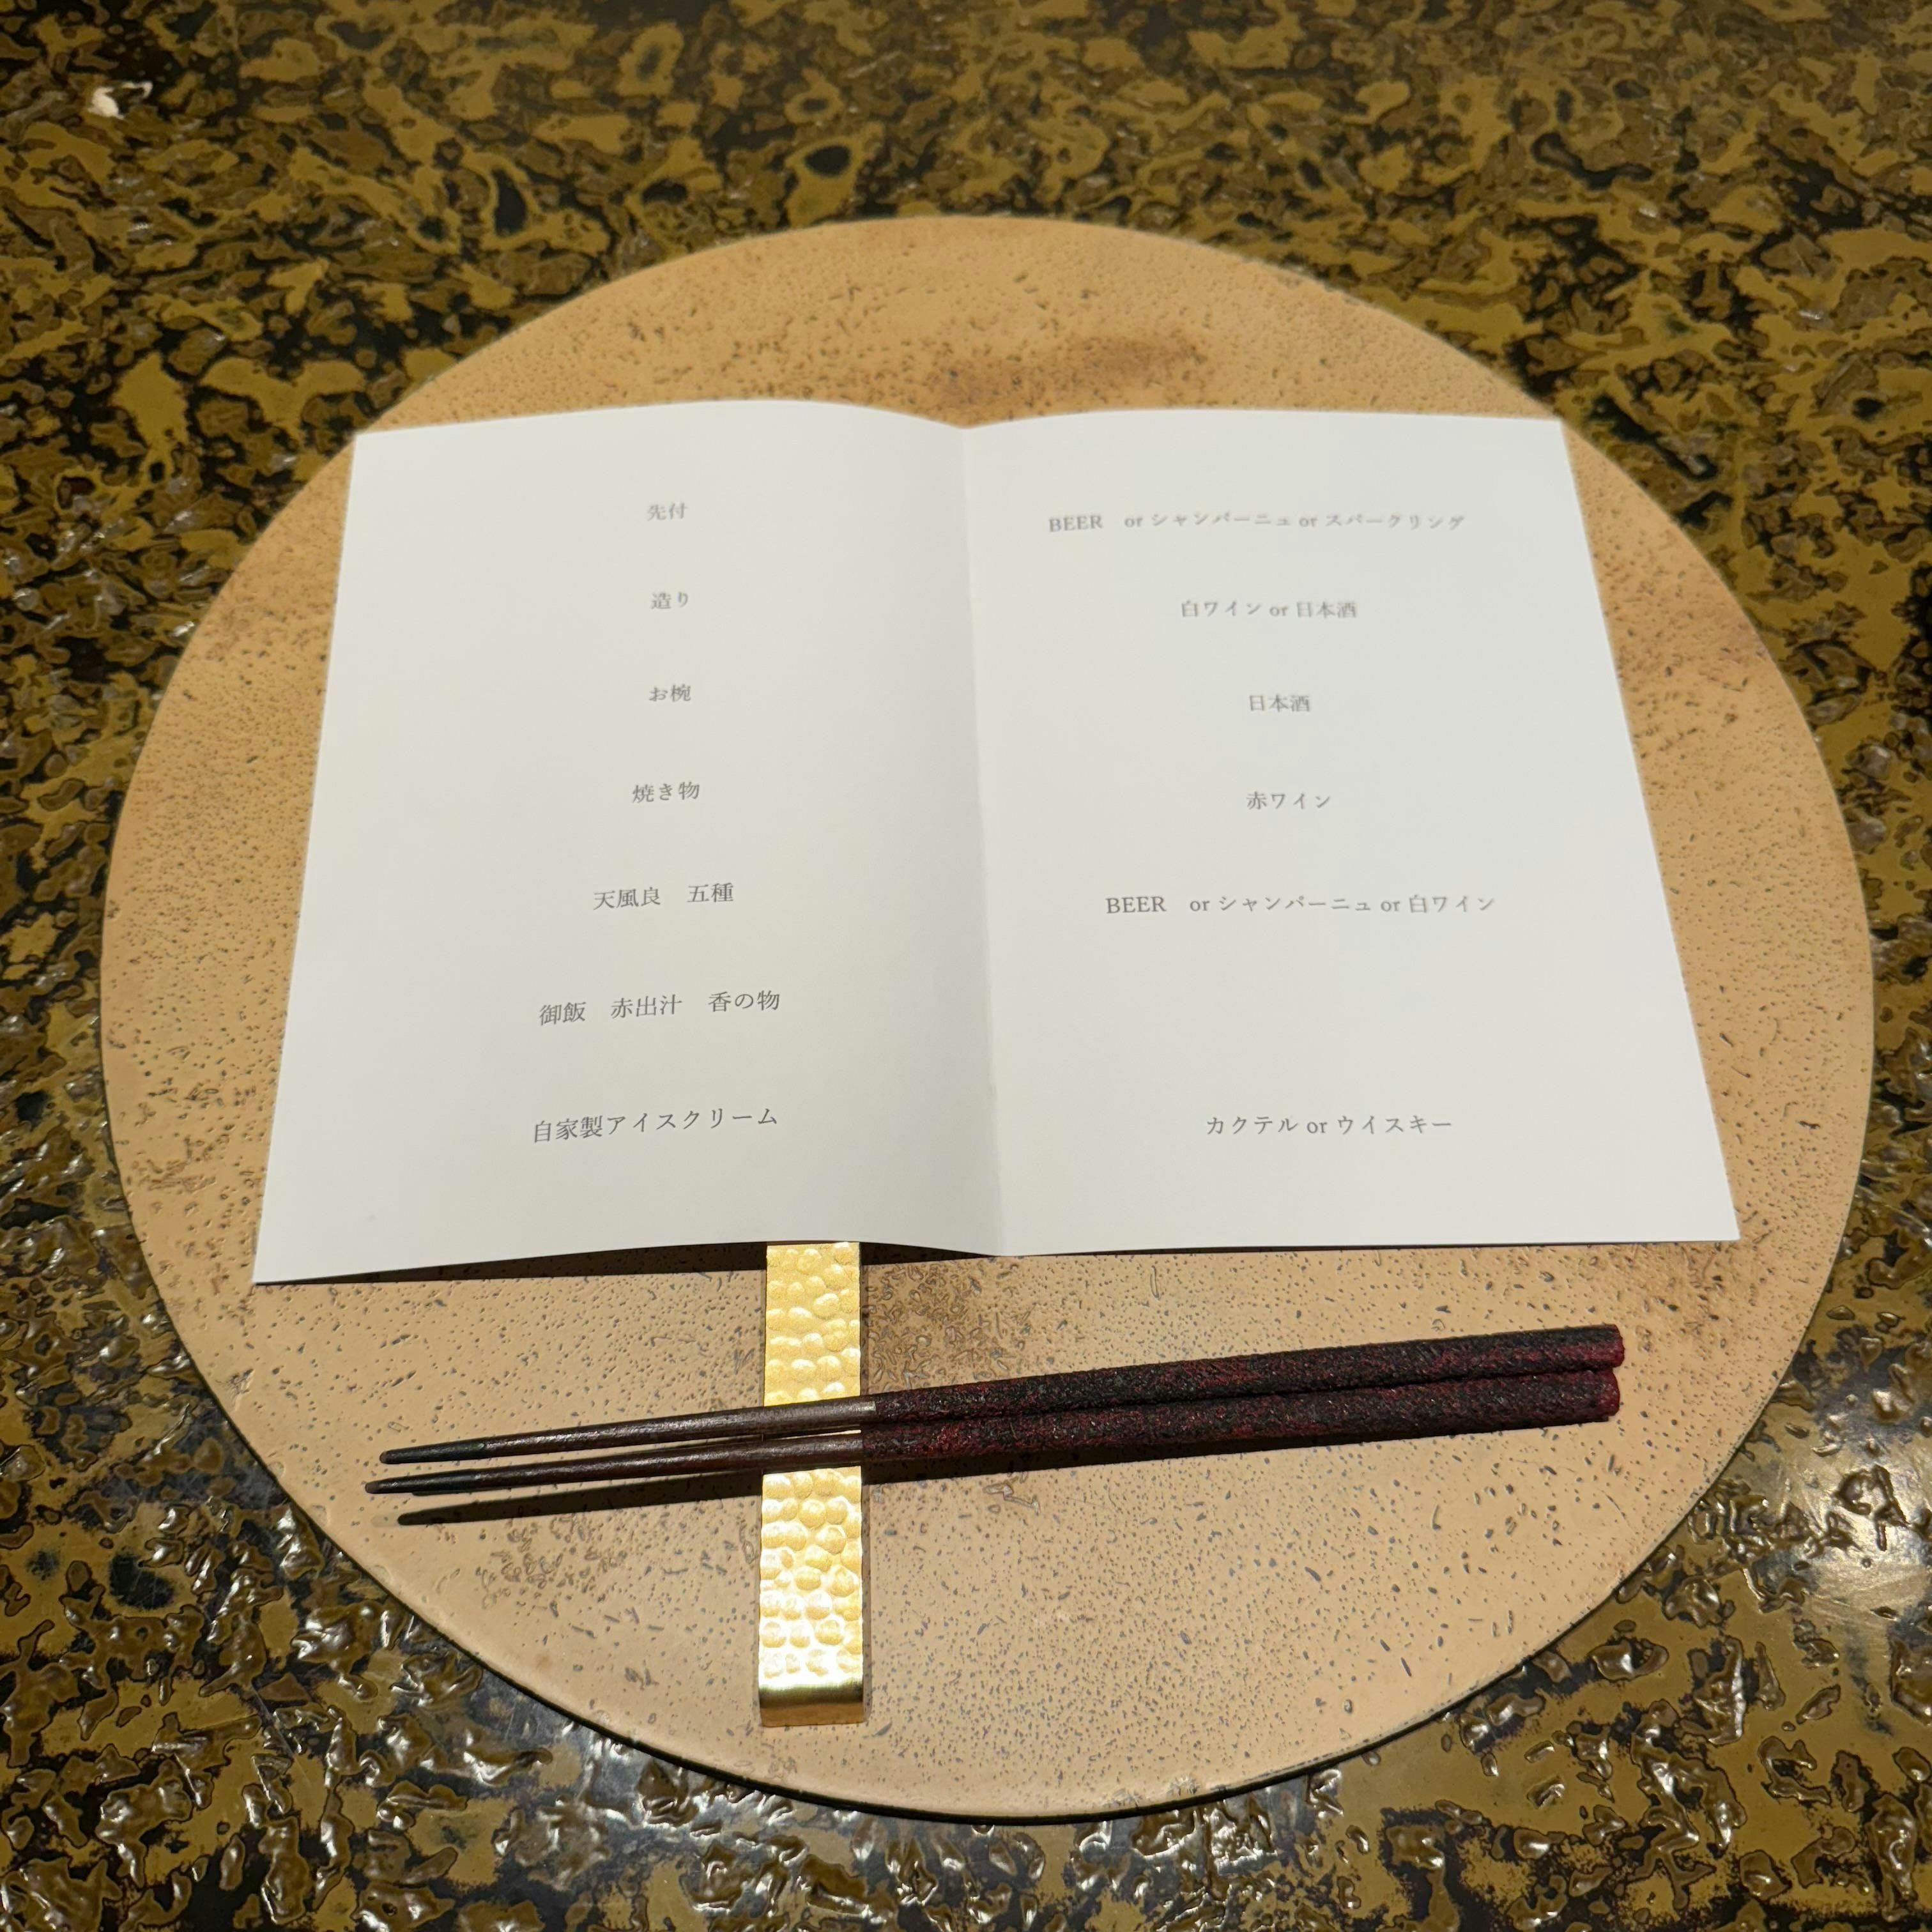 先付
造り
お椀
焼き物
天風良　五種
御飯　赤出汁　香の物
自家製アイスクリーム
BEER　or シャンパーニュ or スパークリング
白ワイン or 日本酒
日本酒
赤ワイン
BEER　or シャンパーニュ or 白ワイン
カクテル or ウイスキー